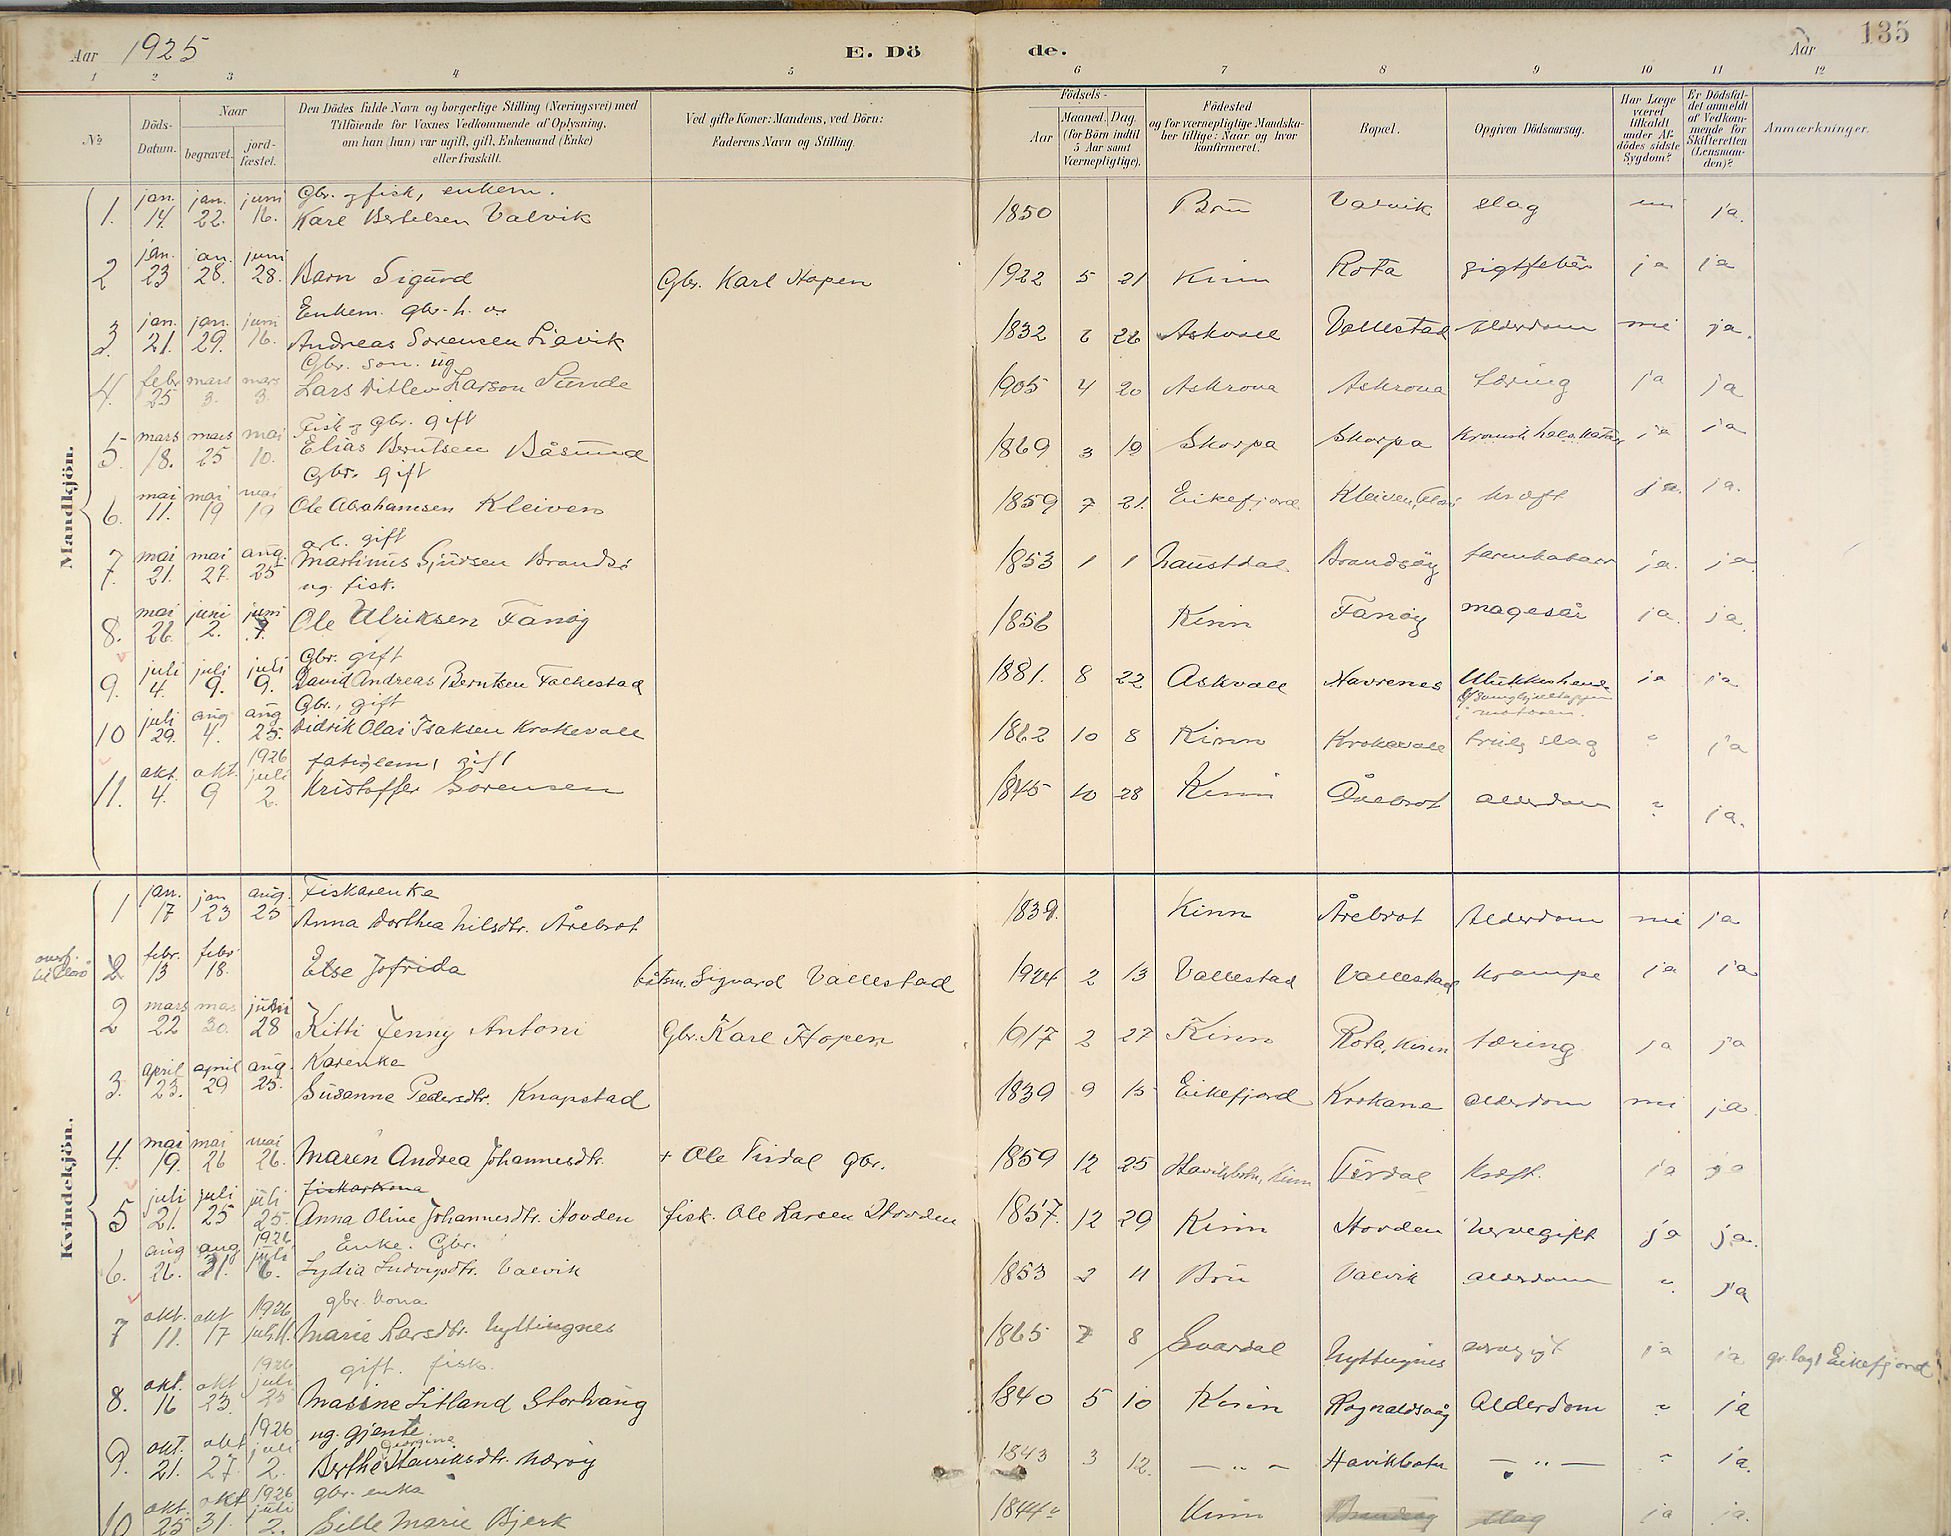 Aar 1925 E. Döde. Aar 135
1 2 3 4 5 6 7 8 9 10 11 12
№ Döds-Datum. Naar begravet. jord-fæstet. Den Dödes fulde Navn og borgerlige Stilling (Næringsvei) med Tilföiende for Voxnes Vedkommende af Oplysning, om han (hun) var ugift, gift, Enkemand (Enke) eller fraskilt. Ved gifte Koner: Mandens, ved Börn: Faderens Navn og Stilling. Födsels- Aar Maaned. Dag. (for Börn indtil 5 Aar samt Værnepligtige). Födested og for værnepligtige Mandskaber tillige: Naar og hvor konfirmeret. Bopæl. Opgiven Dödsaarsag. Har Læge været tilkaldt under Afdödes sidste Sygdom? Er Dödsfaldet anmeldt af Vedkommende for Skifteretten (Lensmanden)? Anmærkninger.
Mandkjön.
1. jan. 14. jan. 22. juni 16. Gbr. og fisk, enkem. Karl Bertelsen Valvik 1850 Bru Valvik slag nei ja.
2 jan. 23 jan. 28. juni 28. Barn Sigurd Gbr. Karl Hopen 1922 5 21 Kinn Rota gigtfeber ja ja
3. jan. 21. jan. 29. juni 16. Enkem. gbr. Andreas Sørensen Liavik 1832 22 Askvoll Vallestad Alderdom nei ja.
4. febr 25 mars 3. mars 3. Gbr. søn. ug Lars Ditlev Larson Sunde 1905 4 20 Askrova Askrova tæring ja ja
5. mars 18. mars 25 mai 10. Fisk og gbr. gift Elias Berntsen Båsund 1869 3 19 Skorpa Skorpa ja ja
6. mai 11. mai 19 mai 19 Gbr. gift Ole Abrahamsen Kleiven 1859 7 21. Eikefjord Kleiven, kræft ja. ja.
7. mai 21. mai 27. aug. 25 arb. gift Martinus Gjursen Brandsø 1853 1 1 Naustdal Brandsøy tarmkatarr ja. ja
8. mai 26. juni 2. juni 7. ug. fisk. Ole Ulriksen Fanøy 1856 Kinn Fanøy magesår ja. ja.
9. juli 4. juli 9. juli 9. Gbr. gift David Andreas Berntsen Falkestad 1881. 8 22 Askvoll Havrenes Ulukkeshende ja ja
i motoren.
10 juli 29. aug 4. aug 25. Gbr., gift Didrik Olai Isaksen Krokevoll 1862 10 8 Kinn Krokevoll trulig slag " ja
11. okt. 4. okt. 9 1926 juli 2. fatiglem, gift Kristoffer Sørensen 1845 10 28 Kinn Årebrot alderdom " ja.
Kvindekjön.
1 jan. 17 jan 23 aug. 25 Fiskarenka Anna Dorthea Nilsdtr. Årebrot 1839. Kinn Årebrot Alderdom nei ja
2 febr. 13 febr 18. Else Jofrida Sigvard Vallestad 1924 2 13 Vallestad Vallestad krampe ja ja
2 mars 22 mars 30. juni 28 Kitti Jenny Antoni Gbr. Karl Hopen 1917 2 27 Kinn Rota, Kinn tæring ja ja
3. april 23. april 29 aug. 25. Kårenke Susanne Pedersdtr. Knapstad 1839 9 15 Eikefjord Krokane alderdom nei ja.
4. mai 19. mai 26 mai 26. Maren Andrea Johannesdtr. + Ole Tirdal gbr. 1859 12 25 Havikbotn, Kinn Tirdal kræft. ja ja
5 juli 21. juli 25 juli 25. fiskarkona Anna Oline Johannesdtr. Hovden fisk. Ole Larsen Hovden 1857. 12 29 Kinn Hovden nervegikt ja ja.
6. aug 26. aug 31. 1926 juli 6. Enke. Gbr. Lydia Ludvigsdtr. Valvik 1853 2 11 Bru Valvik alderdom " ja
7 okt. 11. okt 17 1926 juli 11. gbr. kona Marie Larsdtr. Hyttingnes 1865 7 8 Svardal Hyttingnes ja ja gr. lagt Eikefjord
8. okt. 16 okt 23. 1926 juli 25 gift. fisk. Masine Litland Storhaug 1840 5 10 Kinn Rognaldsvåg Alderdom " ja
9. okt. 21. okt 27. 1926 juli 2. ug. gjente Berthe Georgine Hævikdtr. Nærøy 1843 3 12. — " — Havikbotn — " — " ja.
10 okt. 25 okt 31. 1926 juli 2. gbr. enka Sille Marie Bjerk 1844 Kinn Brandsøy slag ja ja.